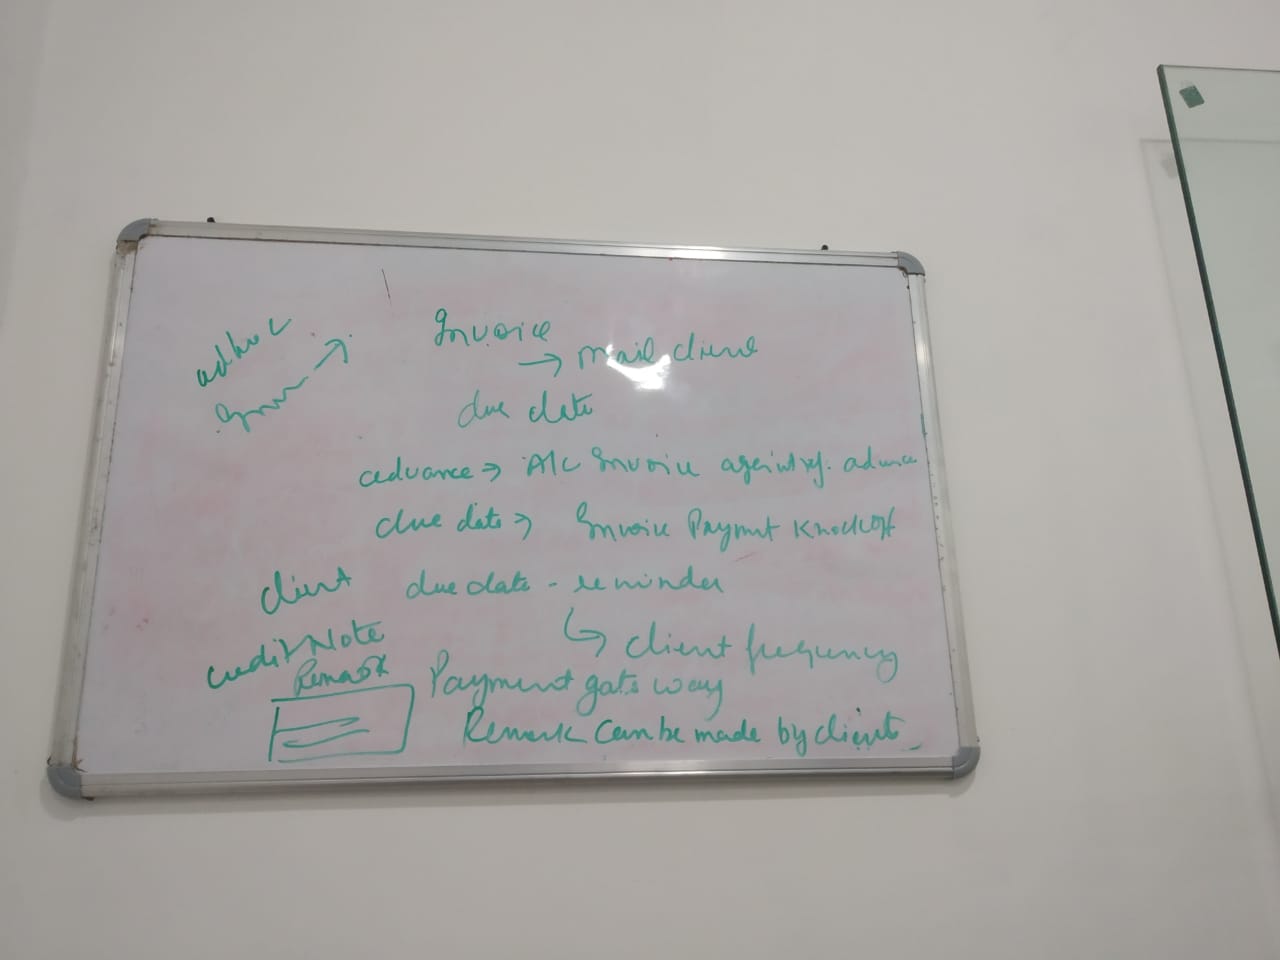 adhoc
Invoice
→ mail client
due date
advance → A/c Invoice against ref. advance
due date → Invoice Paymnt Knockoff
client due date - reminder
↳ client frequency
credit Note
Remark
Payment gate way
Remark can be made by client